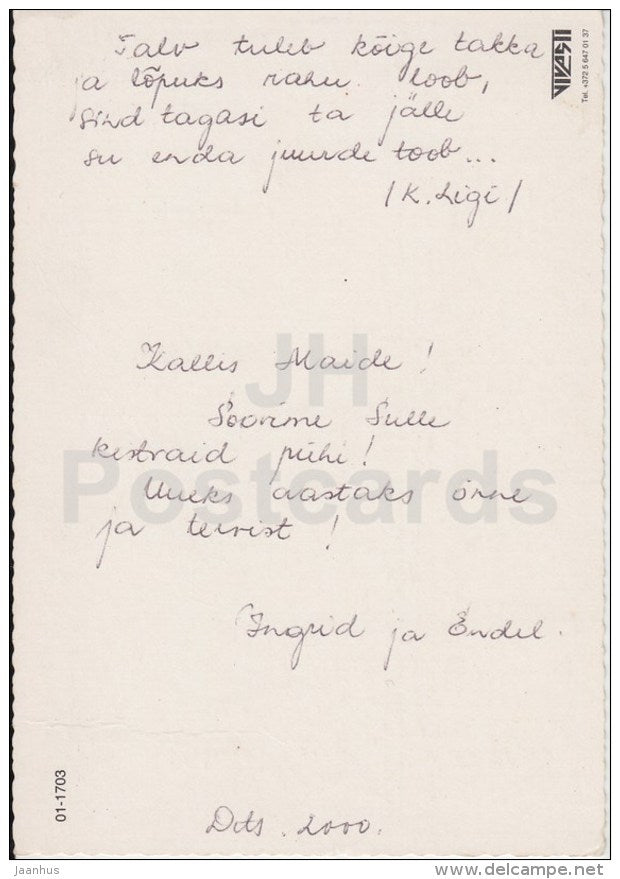 Talv tuleb kõige takka
ja lõpuks rahu loob,
sind tagasi ta jälle
su enda juurde toob...
/K. Ligi/
VIVASTI
Tel. +372 5 647 01 37
Kallis Maide!
Soovime Sulle
kestvaid pühi!
Uueks aastaks õnne
ja tervist!
Ingrid ja Endel.
Dets. 2000.
01-1703
JH
Postcards
jaanhus
www.delcampe.net